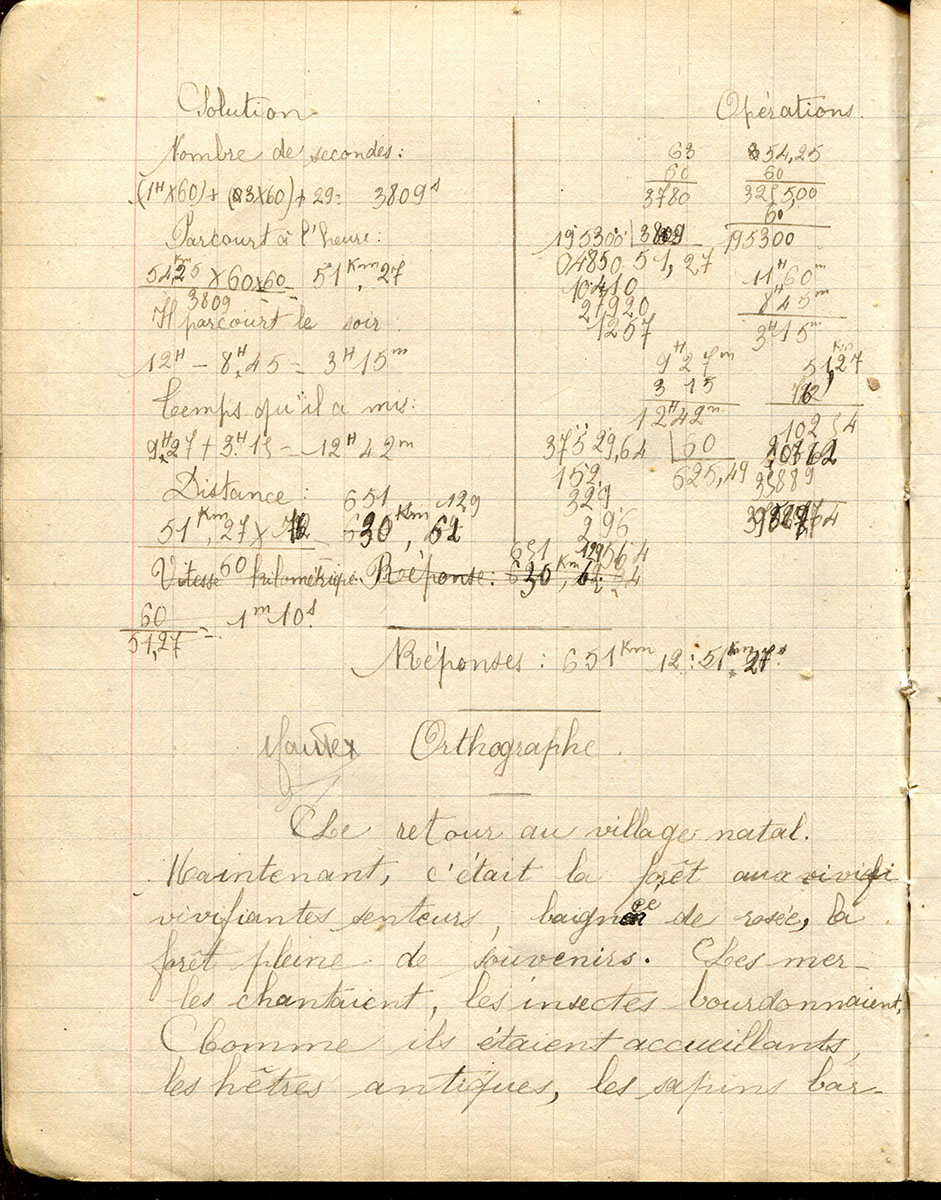 Solution
Nombre de secondes:
(1H×60) + (3×60) + 29 = 3809s
Parcourt à l'heure:
54Km,25 × 60 × 60 = 51Km,27
3809
Il parcourt le soir
12H – 8H,45 = 3H15m
Temps qu'il a mis:
9H,27 + 3H.15 = 12H42m
Distance: 651 129
51Km,27 × 762 630Km,62
60
Vitesse kilométrique. Réponse: 630Km,62
651 129564
60 = 1m10s.
51,27
Opérations.
63 54,25
60 60
3780 325500
60
195300 3809 195300
04850 51,27
10410 11H60m
27920 8H45m
1257 3H15m
9H27m 51Km,27
3 15 762
12H42m 10254
37529,64 60
152 625,49
329 35889
296
Réponses: 651Km,12: 51Km,27.
Orthographe.
Le retour au village natal.
Maintenant, c'était la forêt aux vivifi
vivifiantes senteurs, baignée de rosée, la
forêt pleine de souvenirs. Les mer-
les chantaient, les insectes bourdonnaient,
Comme ils étaient accueillants,
les hêtres antiques, les sapins bar-